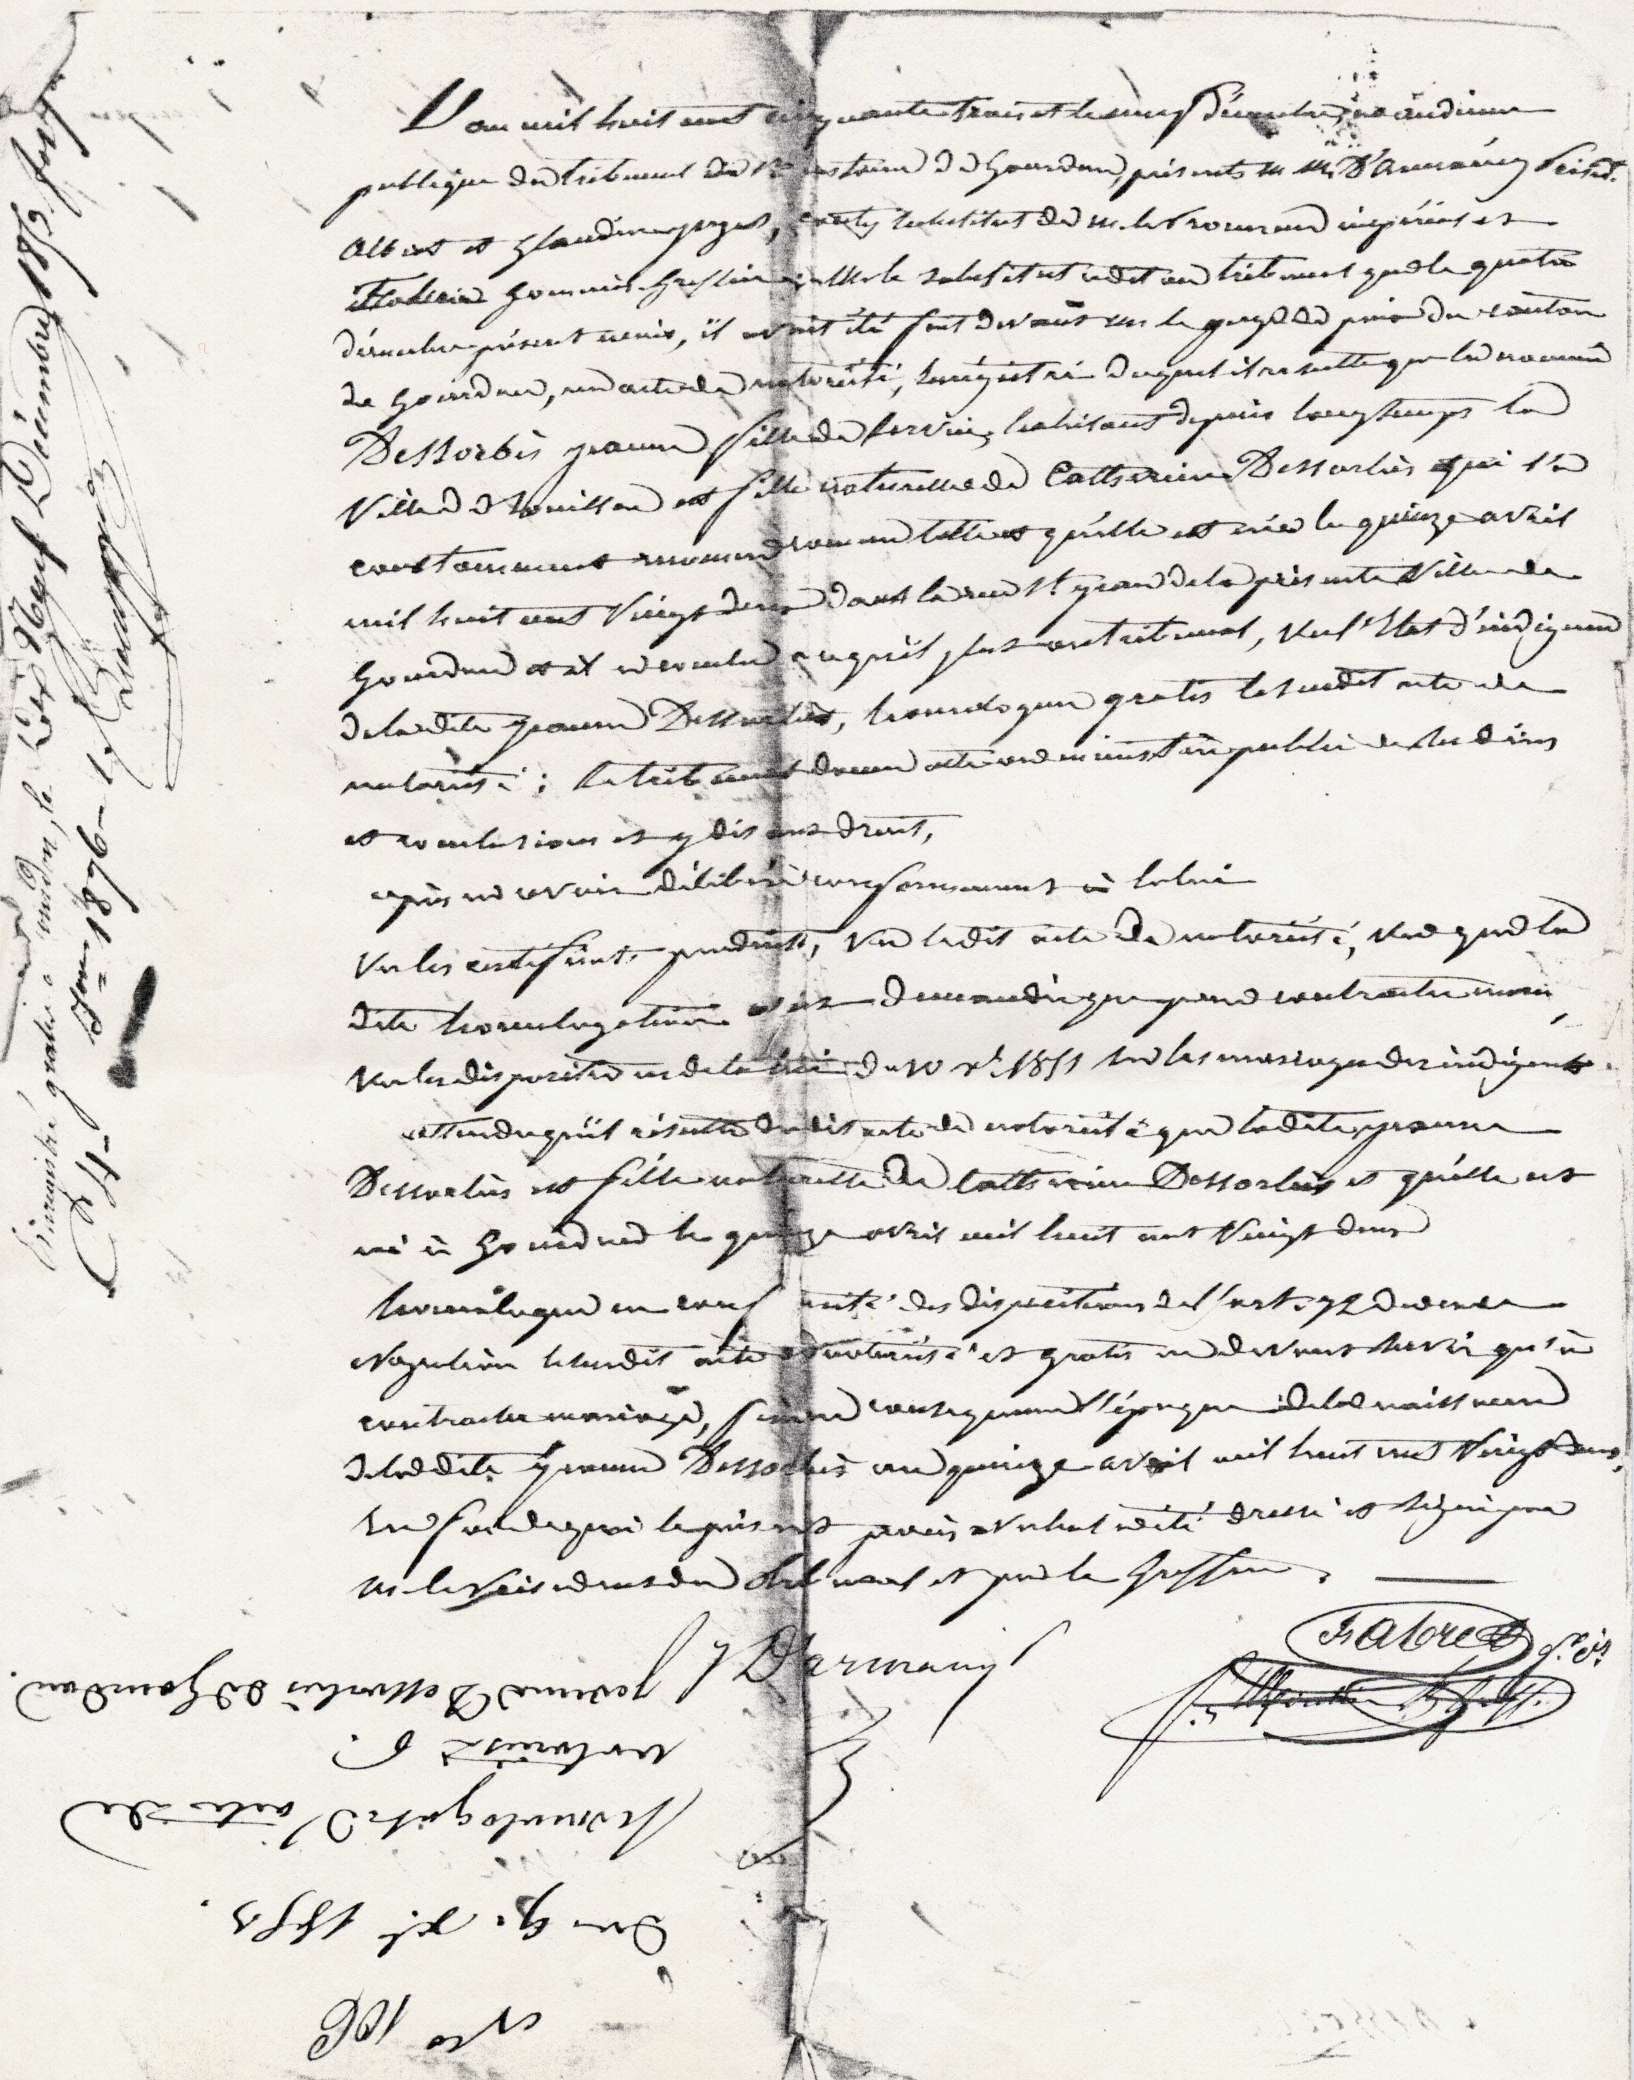 L'an mil huit cent cinquante trois et le neuf Décembre, en audience
publique du tribunal de 1re instance de Gourdon, présents M. M. Darmany Présidt.
Albert et juges, substitut de M. le Procureur impérial et
commis Greffier M. le substitut a dit au tribunal que le quatre
décembre présent mois, il avait été fait devant M. le juge de paix du canton
de Gourdon, un acte de notoriété, enrégistré duquel il résulte que la nommée
Dessorbès Jeanne fille de service, habitant depuis longtemps la
Ville de Souillac est fille naturelle de Catherine Dessorbès qui l'a
constamment reconnue comme telle et qu'elle est née le quinze avril
mil huit cent Vingt deux dans la rue St. Jean de la présente Ville de
Gourdon et il a conclu a ce qu'il plut au tribunal, vu l'état d'indigence
de la dite Jeanne Dessorbès, homologuer gratis le susdit acte de
notoriété ; le tribunal donne acte au ministère public de ses dires
et conclusions et y disant droit,
après en avoir délibéré conformement à la loi
Vu les certificats produits, Vu ledit acte de notoriété, Vu que la
dite homologation n'est demandée que pour contracter mariage,
Vu les dispositions de la loi du 10 Xbre 1851 sur les mariages des indigents.
attendu qu'il résulte dudit acte de notoriété que ladite Jeanne
Dessorbès est fille naturelle de Catherine Dessorbès et qu'elle est
née à Gourdon le quinze avril mil huit cent Vingt deux
homologue en conformité des dispositions de l'art. 72 du code
Napoléon le susdit acte de notoriété et gratis ne devant servir qu'à
contracter mariage, fixe en conséquence l'époque de la naissance
de la dite Jeanne Dessorbès au quinze avril mil huit cent Vingt deux.
En foi de quoi le présent procès Verbal a été dressé et signé par
M. le Président du tribunal et par le Greffier.
Darmany
Fabre
Enregistré gratis à Gourdon, le Dix Neuf Décembre 1853. fo
No 106
Du 9. Xbre 1853.
Homologation d'acte de
notoriété
Jeanne Dessorbès de Gourdon.